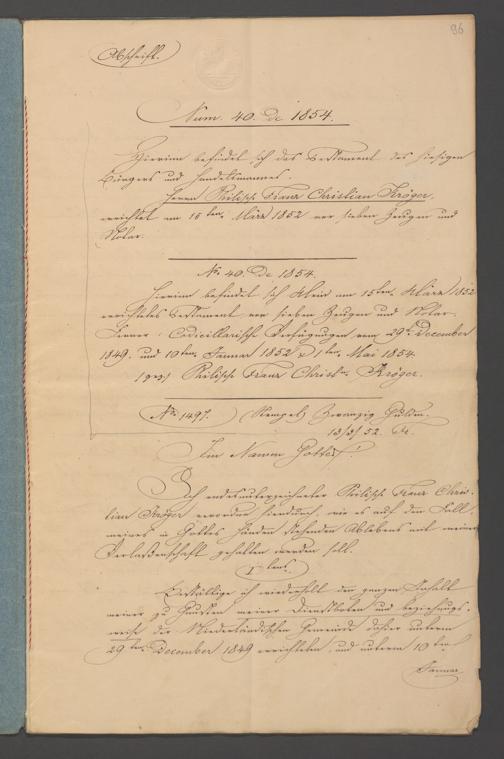 96
Abschrift.
Num. 40. de 1854.
Hierinn befindet sich das Testament des hiesigen
Bürgers und Handelsmannes.
Herrn Philipp Franz Christian Kröger.
errichtet am 15ten. März 1852 vor sieben Zeugen und
Notar.
No. 40. de 1854.
Hierinn befindet sich mein am 15ten. März 1852
errichtetes Testament vor sieben Zeugen und Notar.
Ferner: Codicillarische Verfügungen vom 29t. December
1849. und 10ten. Januar 1852 & 1ten. Mai 1854.
(gez.) Philipp Franz Christn. Kröger.
No. 1497. (Stempel) Zwanzig Gulden.
13/3/52.
Im Namen Gottes!
Ich endesunterzeichneter Philipp Franz Chris-
tian Kröger verordne hierdurch, wie es auf den Fall
meines in Gottes Händen stehenden Ablebens mit meiner
Verlassenschaft gehalten werden soll.
1tens.
Bestättige ich wiederholt den ganzen Inhalt
meiner zu Gunsten meiner Dienstboten und beziehungs-
weise der Niederländischen Gemeinde dahier unterm
29ten. December 1849 errichteten, und unterm 10ten
Januar